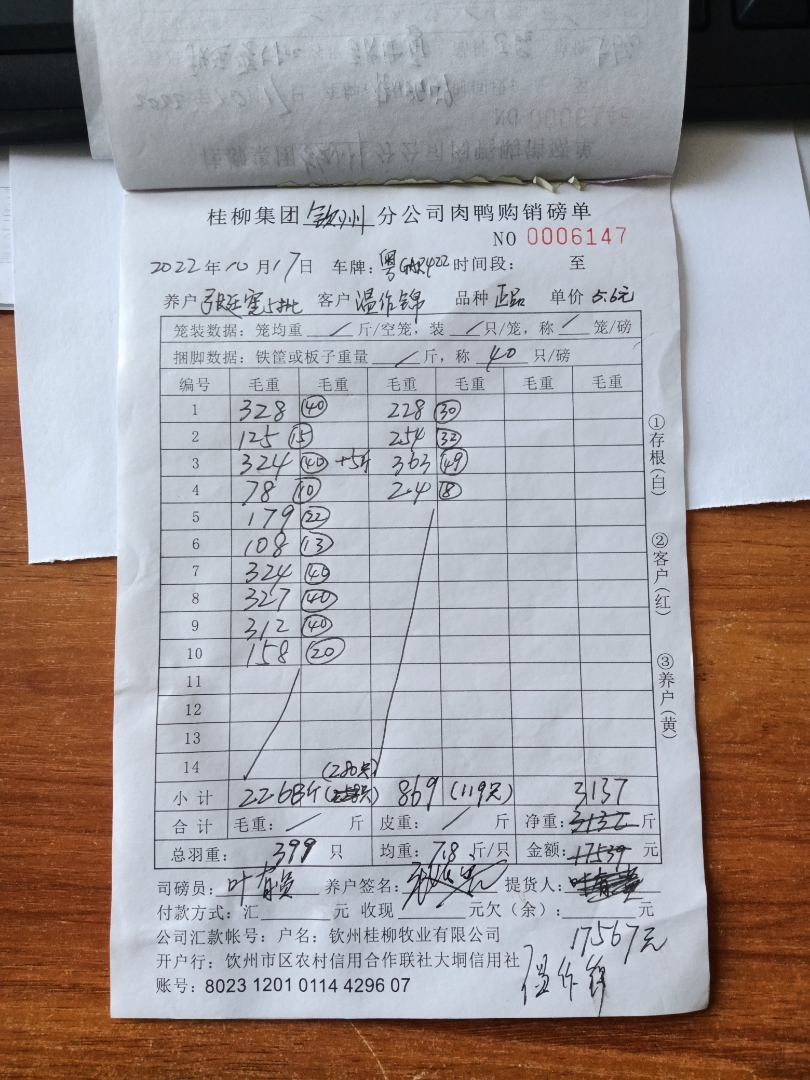 桂柳集团 钦州 分公司肉鸭购销磅单
NO 0006147
2022年10月17日 车牌: 粤GAR422 时间段: 至
养户 5批 客户 温作锦 品种 正品 单价 5.6元
笼装数据: 笼均重 / 斤/空笼, 装 / 只/笼, 称 / 笼/磅
捆脚数据: 铁筐或板子重量 / 斤, 称 40 只/磅
编号 毛重 毛重 毛重 毛重 毛重 毛重
1 328 40 228 30
2 125 15 254 32
3 324 40 +5斤 363 49
4 78 10 24 8
5 179 22
6 108 13
7 324 40
8 327 40
9 312 40
10 158 20
11
12
13
14
小计 2268斤 (280只) 869 (119只) 3137
合计 毛重: / 斤 皮重: / 斤 净重: 斤
总羽重: 399 只 均重: 7.8 斤/只 金额: 17539 元
司磅员: 养户签名: 提货人:
付款方式: 汇 元 收现 元欠(余): 元
17567元
公司汇款帐号: 户名: 钦州桂柳牧业有限公司
开户行: 钦州市区农村信用合作联社大垌信用社
温作锦
账号: 8023 1201 0114 4296 07
①存根(白)
②客户(红)
③养户(黄)